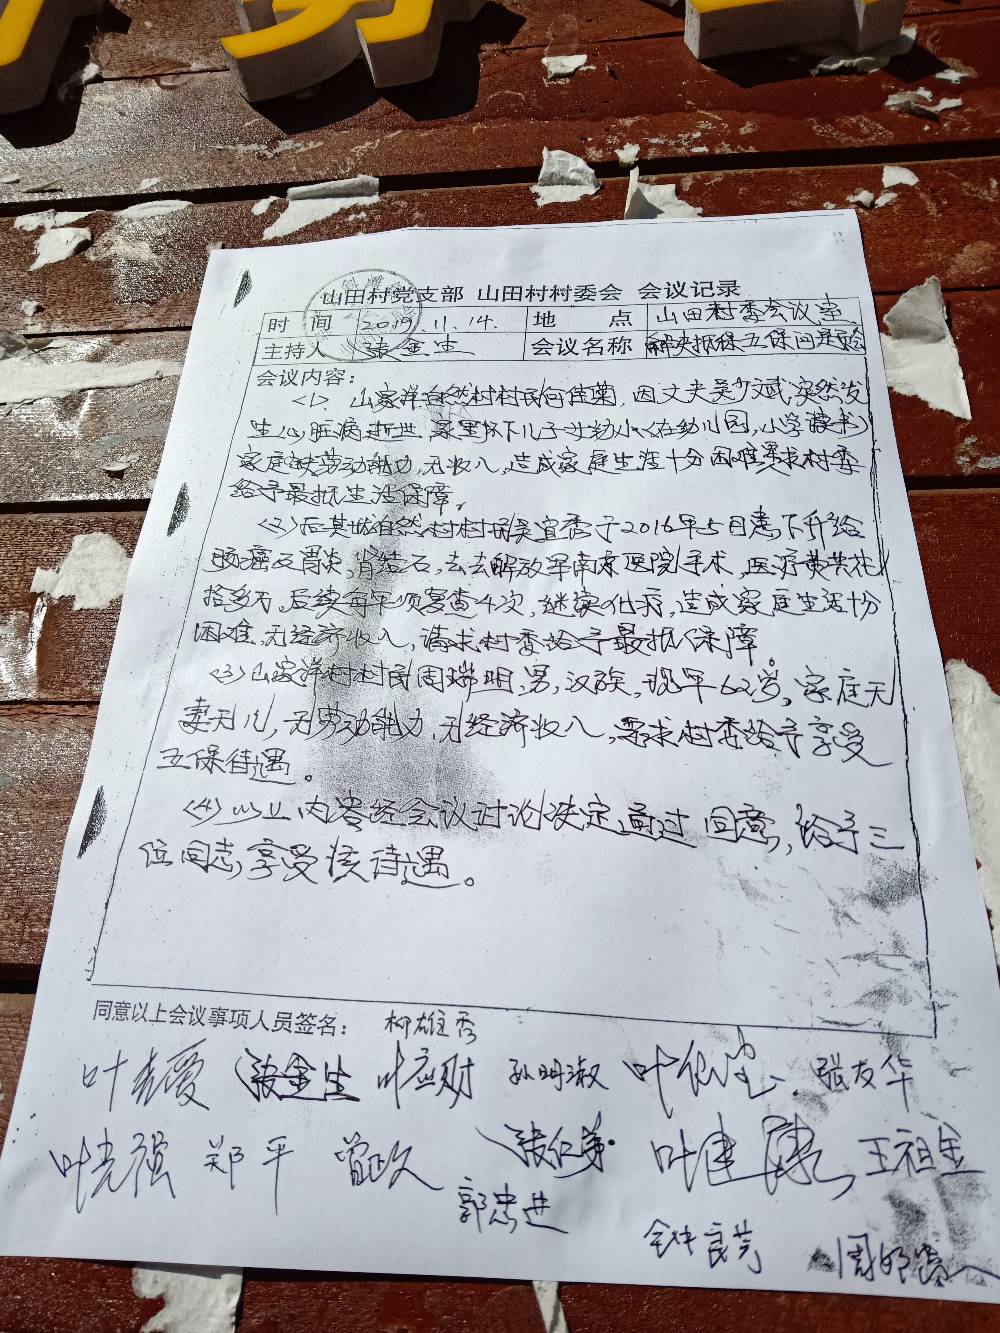 山田村党支部 山田村村委会 会议记录
时 间 2019.11.14. 地 点 山田村委会议室
主持人 张金生 会议名称 解决低保五保问题
会议内容：
<1> 山家洋自然村村民何佳菊，因丈夫吴少斌突然发
生心脏病逝世，家里抔下儿子女幼小<在幼儿园，小学读书>
家庭缺劳动能力，无收入，造成家庭生活十分困难要求村委
给予最抵生活保障。
<2> 自然村村民吴宜秀于2016年5日患下升给
肠癌及胃炎，肾结石，去去解放军南京医院手术，医疗费共花
拾多万，后续每年须复查4次，继续化疗，造成家庭生活十分
困难，无经济收入，请求村委给予最抵保障。
<3> 山家洋村村民周瑞明，男，汉族，现年62岁，家庭无
妻无儿，无劳动能力，无经济收入，要求村委给予享受
五保待遇。
<4> 以上内容经会议讨论决定通过同意，给予三
位同志，享受该待遇。
同意以上会议事项人员签名： 柳雄秀
张金生 叶应财 孙明淑 张友华
叶光强 郑平 曾政 张仁弟 叶建康 王祖金
郭忠进
钟良芳